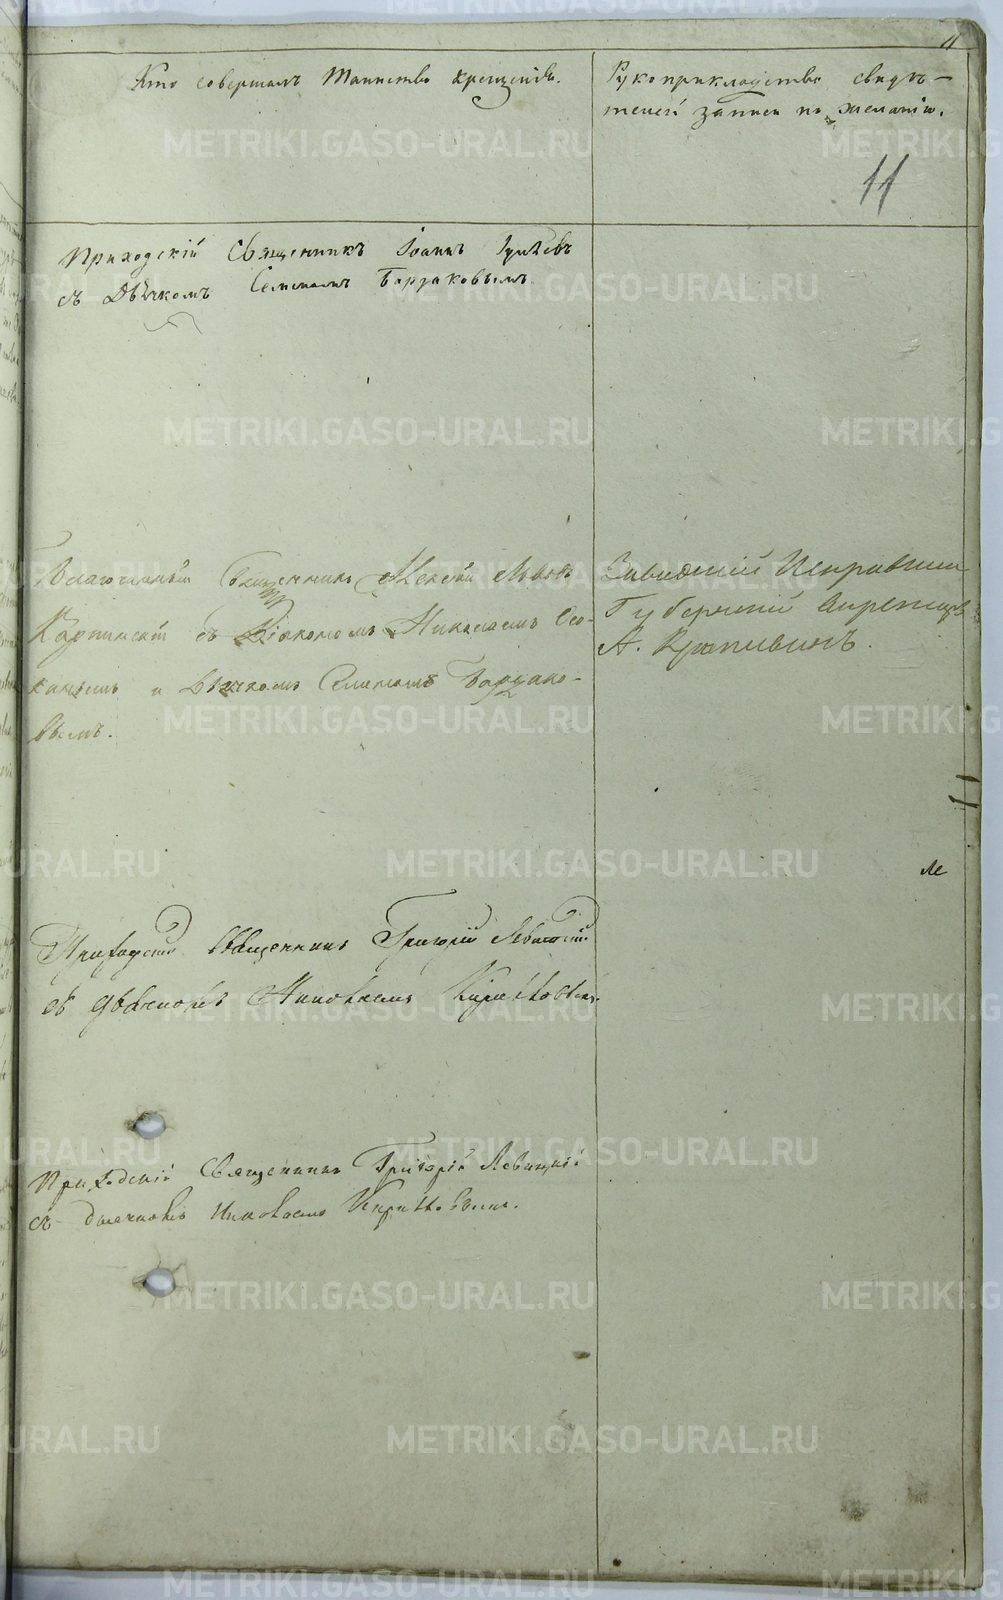 Кто совершалъ Таинство крещенія.
Рукоприкладство свидѣ-
телей записи по желанію.
11
Приходскій Священникъ Іоаннъ
съ Дьячкомъ Семеномъ Бардаковымъ.
Благочинный Священникъ Алексѣй
Карпинскій съ Діакономъ Николаемъ
и Дьячкомъ Семеномъ Бардако-
вымъ.
Заводскій Исправникъ
Губернскій Секретарь
А. Крапивинъ.
Приходскій Священникъ Григорій Левицкій
съ Николаемъ
Приходскій Священникъ Григорій Левицкій
съ дьячкомъ Николаемъ
METRIKI.GASO-URAL.RU